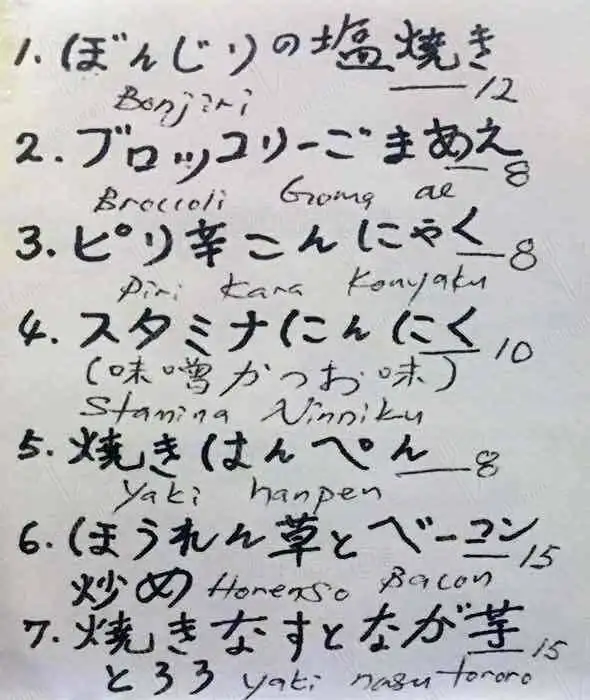 1. ぼんじりの塩焼き
—12
Bonjiri
2. ブロッコリーごまあえ
—8
Broccoli Goma ae
3. ピリ辛こんにゃく—8
Piri Kara Konyaku
4. スタミナにんにく—10
(味噌かつお味)
Stamina Ninniku
5. 焼きはんぺん—8
yaki hanpen
6. ほうれん草とベーコン—15
炒め Horenso Bacon
7. 焼きなすとなが芋—15
とろろ yaki nasu tororo